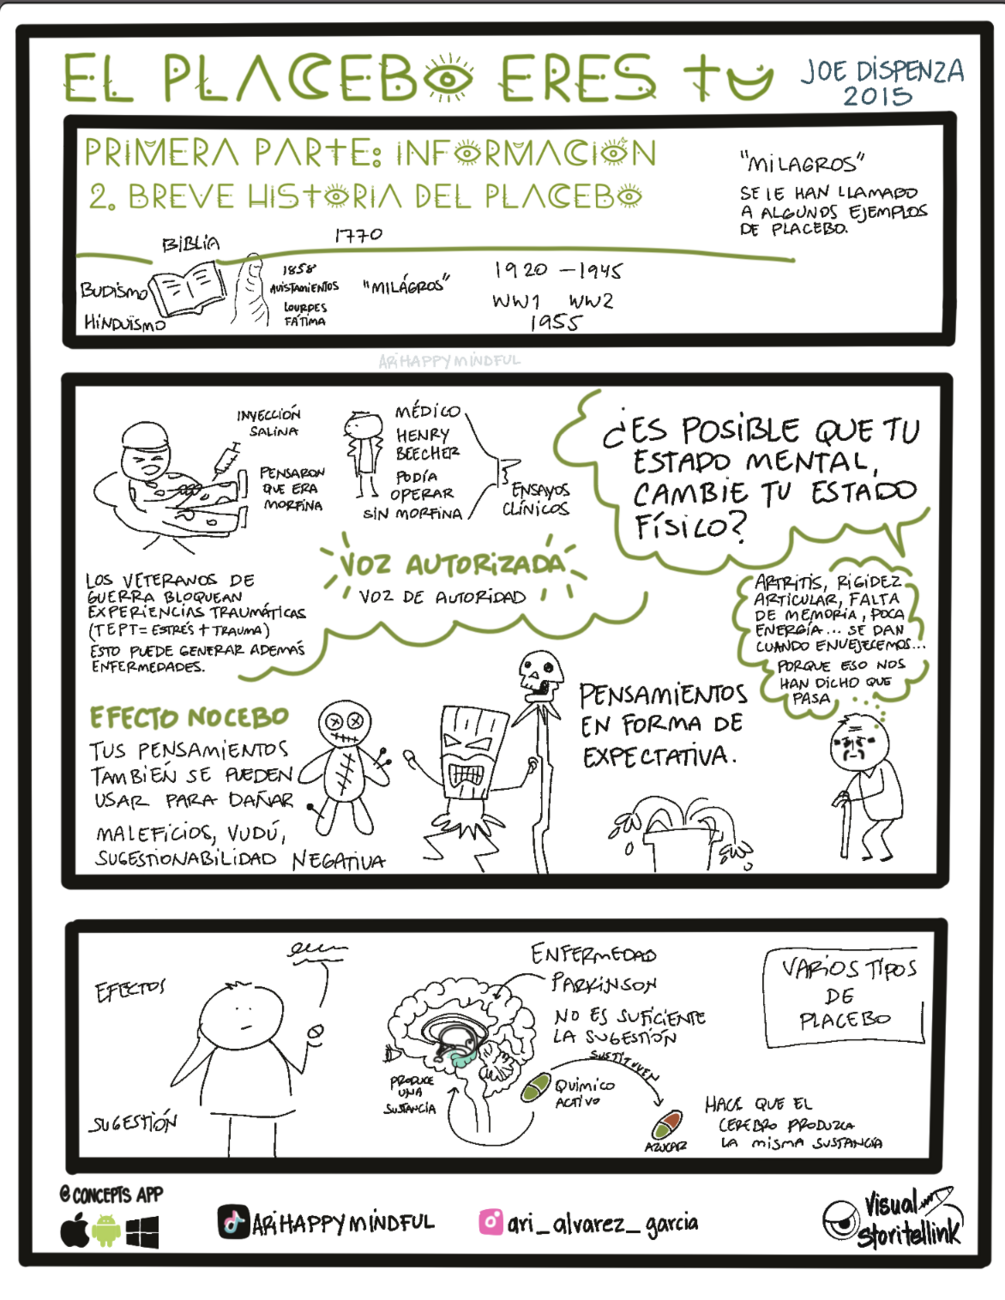 EL PLACEBO ERES TU
JOE DISPENZA
2015
PRIMERA PARTE: INFORMACIÓN
2. BREVE HISTORIA DEL PLACEBO
"MILAGROS"
SE LE HAN LLAMADO
A ALGUNOS EJEMPLOS
DE PLACEBO.
BIBLIA
1770
BUDISMO
HINDUISMO
1858
AVISTAMIENTOS
LOURDES
FÁTIMA
"MILÁGROS"
1920 - 1945
WW1 WW2
1955
ARIHAPPYMINDFUL
INYECCIÓN
SALINA
PENSARON
QUE ERA
MORFINA
MÉDICO
HENRY
BEECHER
PODÍA
OPERAR
SIN MORFINA
ENSAYOS
CLÍNICOS
¿ES POSIBLE QUE TU
ESTADO MENTAL,
CAMBIE TU ESTADO
FÍSICO?
VOZ AUTORIZADA
VOZ DE AUTORIDAD
LOS VETERANOS DE
GUERRA BLOQUEAN
EXPERIENCIAS TRAUMÁTICAS
(TEPT = ESTRÉS + TRAUMA)
ESTO PUEDE GENERAR ADEMÁS
ENFERMEDADES.
ARTRITIS, RIGIDEZ
ARTICULAR, FALTA
DE MEMORIA, POCA
ENERGÍA... SE DAN
CUANDO ENVEJECEMOS...
PORQUE ESO NOS
HAN DICHO QUE
PASA
EFECTO NOCEBO
TUS PENSAMIENTOS
TAMBIÉN SE PUEDEN
USAR PARA DAÑAR
MALEFICIOS, VUDÚ,
SUGESTIONABILIDAD NEGATIVA
PENSAMIENTOS
EN FORMA DE
EXPECTATIVA.
EFECTOS
SUGESTIÓN
ENFERMEDAD
PARKINSON
NO ES SUFICIENTE
LA SUGESTIÓN
SUSTITUYEN
PRODUCE
UNA
SUSTANCIA
QUÍMICO
ACTIVO
AZUCAR
HACE QUE EL
CEREBRO PRODUZCA
LA MISMA SUSTANCIA
VARIOS TIPOS
DE
PLACEBO
@CONCEPTS APP
ARIHAPPYMINDFUL
ari_alvarez_garcia
Visual
Storitellink